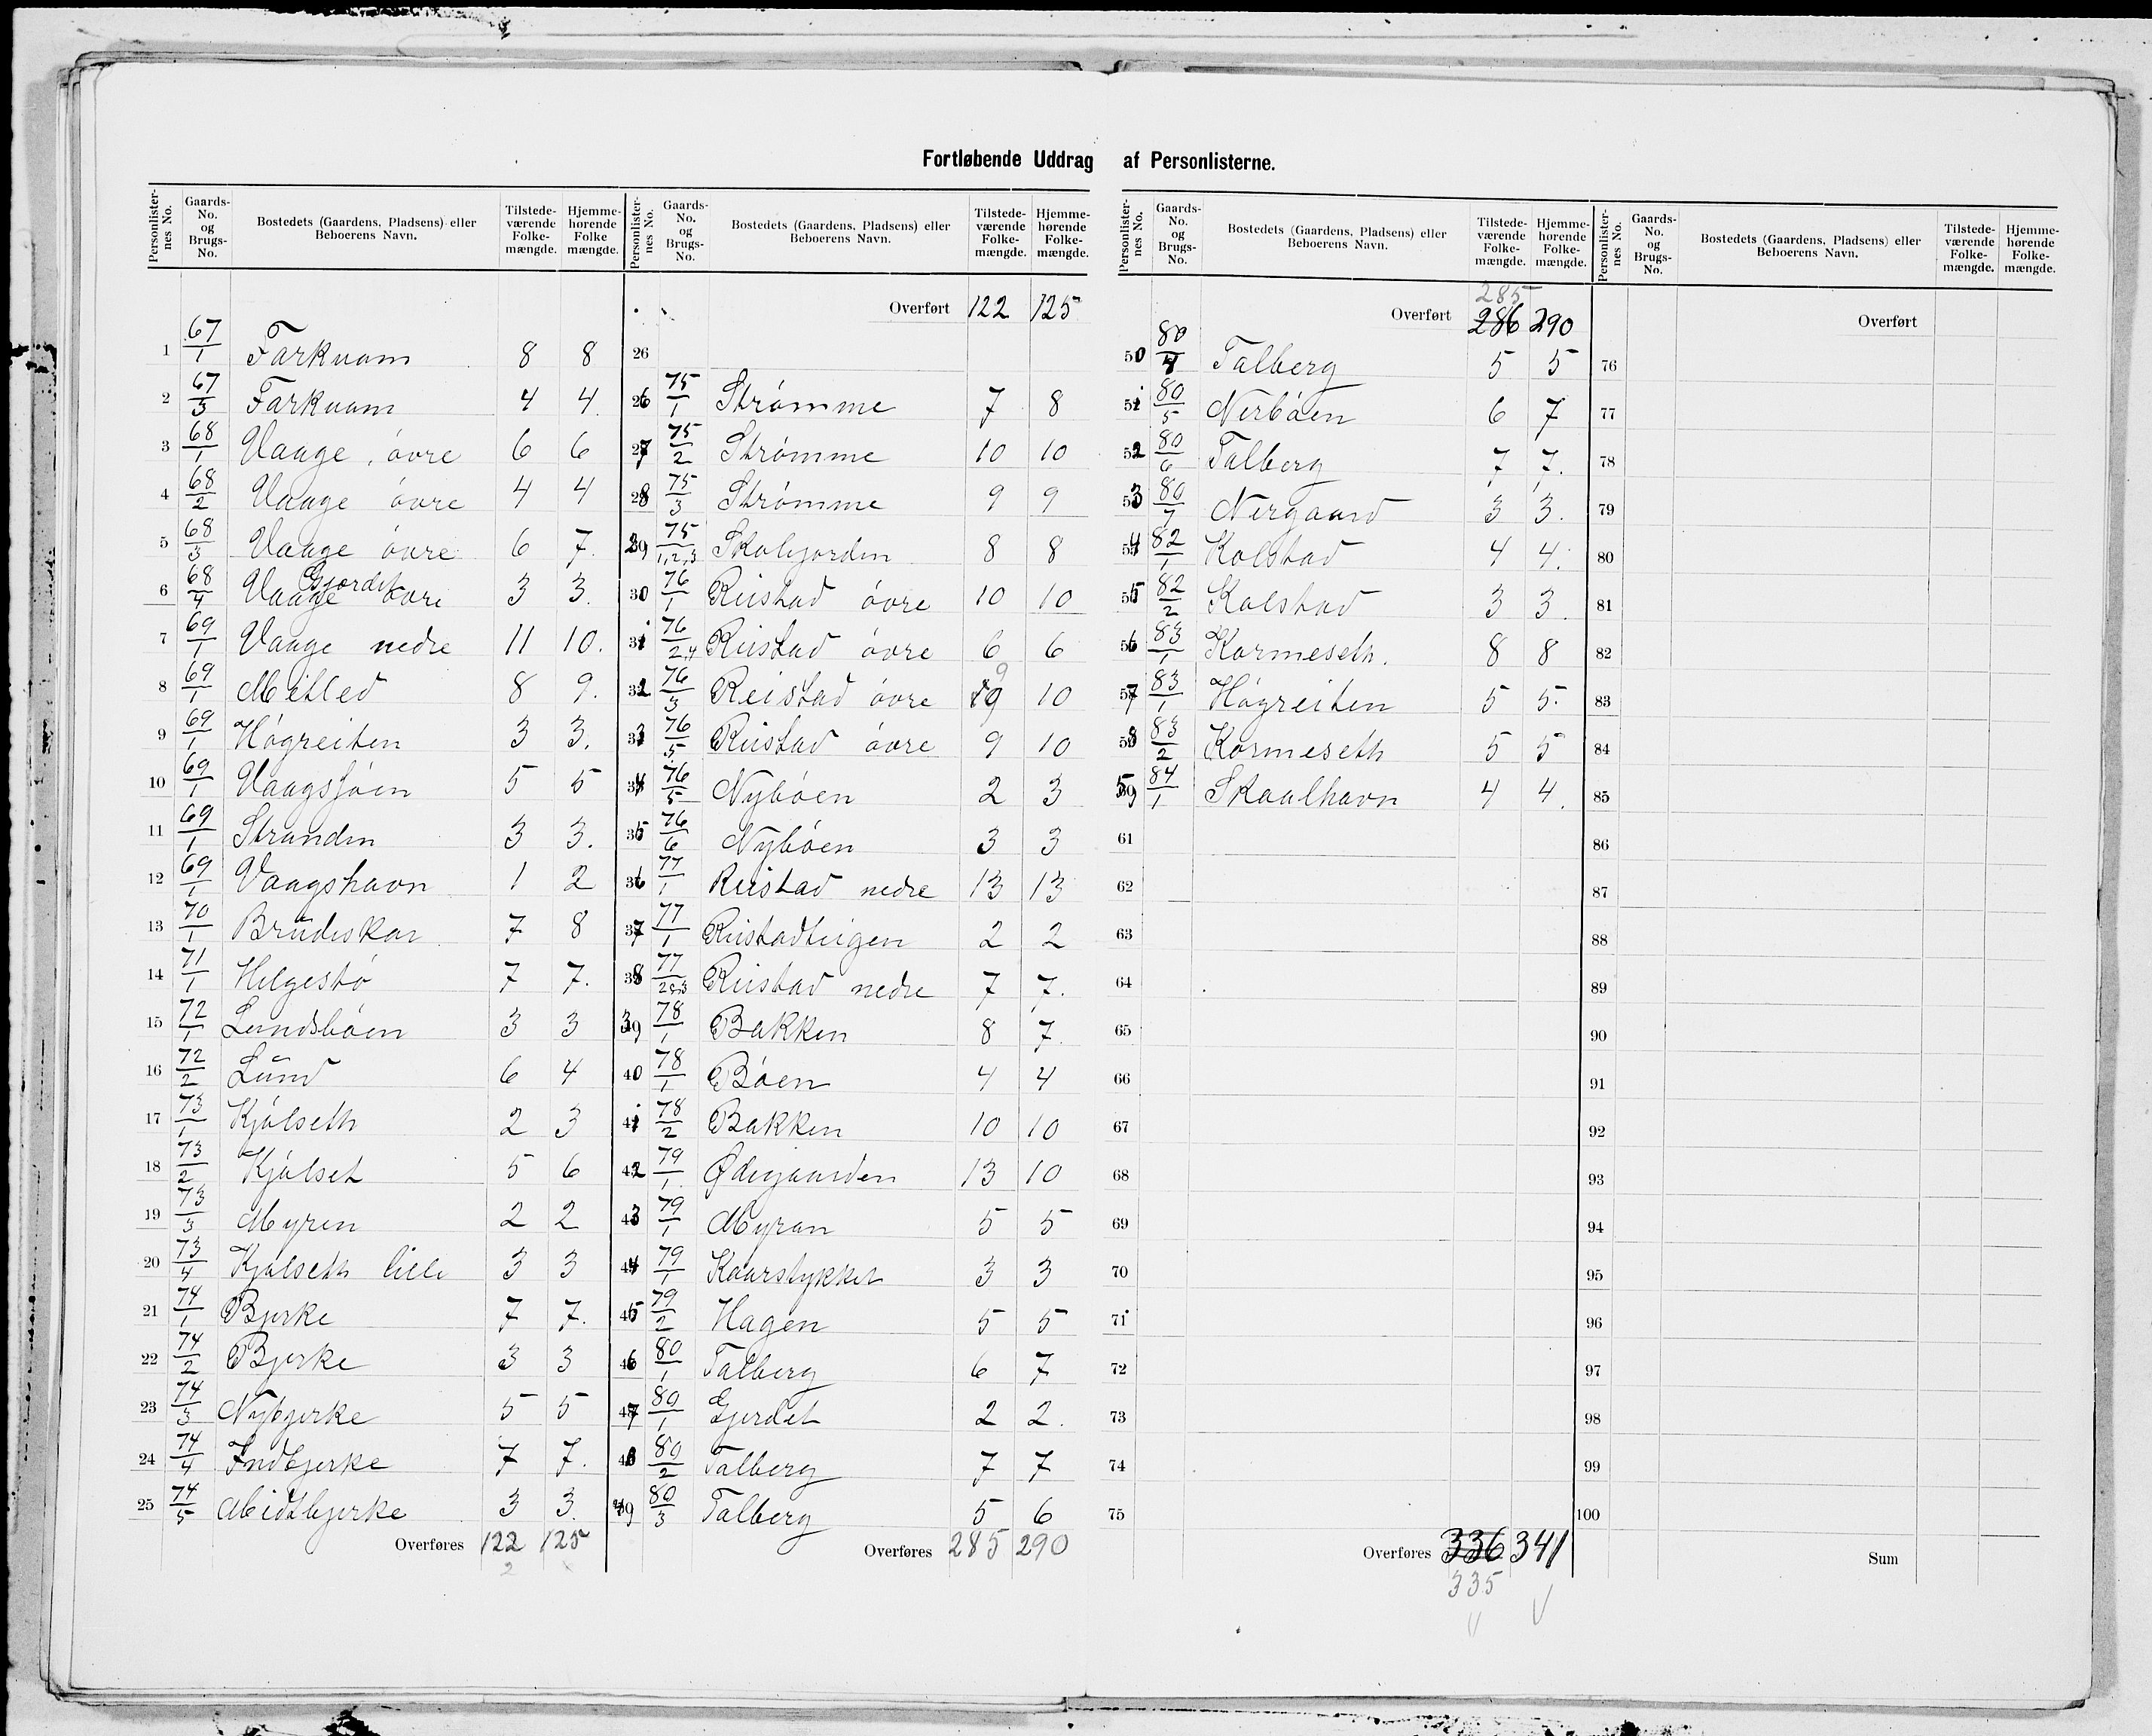 Fortløbende Uddrag af Personlisterne.
Personlister-nes No. Gaards-No. og Brugs-No. Bostedets (Gaardens, Pladsens) eller Beboerens Navn. Tilstede-værende Folke-mængde. Hjemme-hørende Folke mængde.
1 67/1 Farkvam 8 8
2 67/3 Farkvam 4 4.
3 68/1 Vaage, øvre 6 6
4 68/2 Vaage øvre 4 4
5 68/3 Vaage øvre 6 7.
6 68/4 Vaage Gjordet øvre 3 3.
7 69/1 Vaage nedre 11 10.
8 69/1 Mitled 8 9.
9 69/1 Høgreiten 3 3.
10 69/1 Vaagsjøen 5 5
11 69/1 Stranden 3 3.
12 69/1 Vaagshavn 1 2
13 70/1 Brudeskar 7 8
14 71/1 Helgestø 7 7.
15 72/1 Lundsbøen 3 3
16 72/2 Lund 6 4
17 73/1 Kjølseth 2 3
18 73/2 Kjølset 5 6
19 73/3 Myren 2 2
20 73/4 Kjølseth lille 3 3
21 74/1 Bjerke 7 7.
22 74/2 Bjerke 3 3
23 74/3 Nybjerke 5 5
24 74/4 Indbjerke 7 7.
25 74/5 Midtbjerke 3 3.
Overføres 122 125
Personlister-nes No. Gaards-No. og Brugs-No. Bostedets (Gaardens, Pladsens) eller Beboerens Navn. Tilstede-værende Folke-mængde. Hjemme-hørende Folke-mængde.
Overført 122 125
26
26 75/1 Strømme 7 8
27 75/2 Strømme 10 10
28 75/3 Strømme 9 9
29 75/1,2,3 Skolejorden 8 8
30 76/1 Reistad øvre 10 10
31 76/2,4 Reistad øvre 6 6
32 76/3 Reistad øvre 9 10
33 76/5 Reistad øvre 9 10
34 76/5 Nybøen 2 3
35 76/6 Nybøen 3 3
36 77/1 Reistad nedre 13 13
37 77/1 Reistadteigen 2 2
38 77/2&3 Reistad nedre 7 7.
39 78/1 Bakken 8 7.
40 78/1 Bøen 4 4
41 78/2 Bakken 10 10
42 79/1 Ødegaarden 13 10
43 79/1 Myran 5 5
44 79/1 Kaarstykket 3 3
45 79/2 Hagen 5 5
46 80/1 Talberg 6 7
47 80/1 Gjerdet 2 2.
48 80/2 Talberg 7 7
49 80/3 Talberg 5 6
Overføres 285 290
Personlister-nes No. Gaards-No. og Brugs-No. Bostedets (Gaardens, Pladsens) eller Beboerens Navn. Tilstede-værende Folke-mængde. Hjemme-hørende Folke-mængde.
285
Overført 286 290
50 80/4 Talberg 5 5
51 80/5 Nerbøen 6 7
52 80/6 Talberg 7 7.
53 80/7 Nergaard 3 3.
54 82/1 Kolstad 4 4.
55 82/2 Kolstad 3 3.
56 83/1 Kormeseth. 8 8
57 83/1 Høgreiten 5 5.
58 83/2 Kormeseth 5 5
59 84/1 Skaalhavn 4 4.
61
62
63
64
65
66
67
68
69
70
71
72
73
74
75
Overføres 336 341
335
Personlister-nes No. Gaards-No. og Brugs-No. Bostedets (Gaardens, Pladsens) eller Beboerens Navn. Tilstede-værende Folke-mængde. Hjemme-hørende Folke-mængde.
Overført
76
77
78
79
80
81
82
83
84
85
86
87
88
89
90
91
92
93
94
95
96
97
98
99
100
Sum